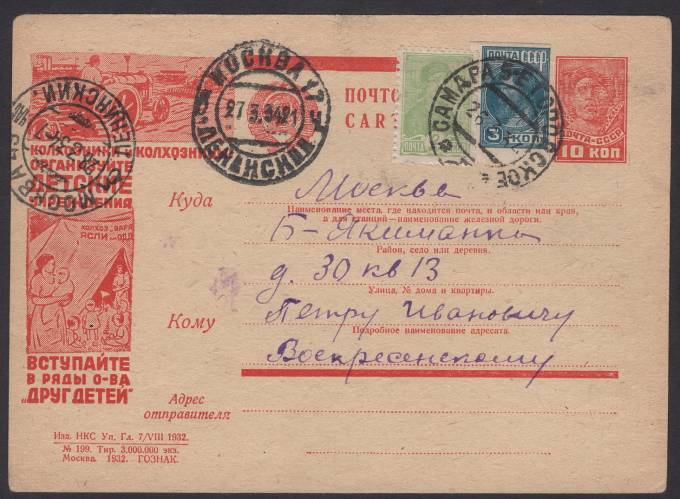 МОСКВА 17
27.3.34 21
ЛЕНИНСКИЙ
САМАРА
ПОЧТО
CART
ПОЧТА СССР
3 КОП
ПОЧТА·СССР
10 КОП
КОЛХОЗНИ
ОРГАНИЗУЙТЕ
ДЕТСКИЕ
ЯСЛИ
ВСТУПАЙТЕ
В РЯДЫ О-ВА
„ДРУГ ДЕТЕЙ”
Куда
Москва
Наименование места, где находится почта, и области или края,
а для станций—наименование железной дороги.
Б-Якиманка
Район, село или деревня.
д. 30 кв 13
Улица, № дома и квартиры.
Кому
Петру Ивановичу
Подробное наименование адресата.
Воскресенскому
Адрес
отправителя:
Изд. НКС Уп. Гл. 7/VIII 1932.
№ 199. Тир. 3.000.000 экз.
Москва. 1932. ГОЗНАК.